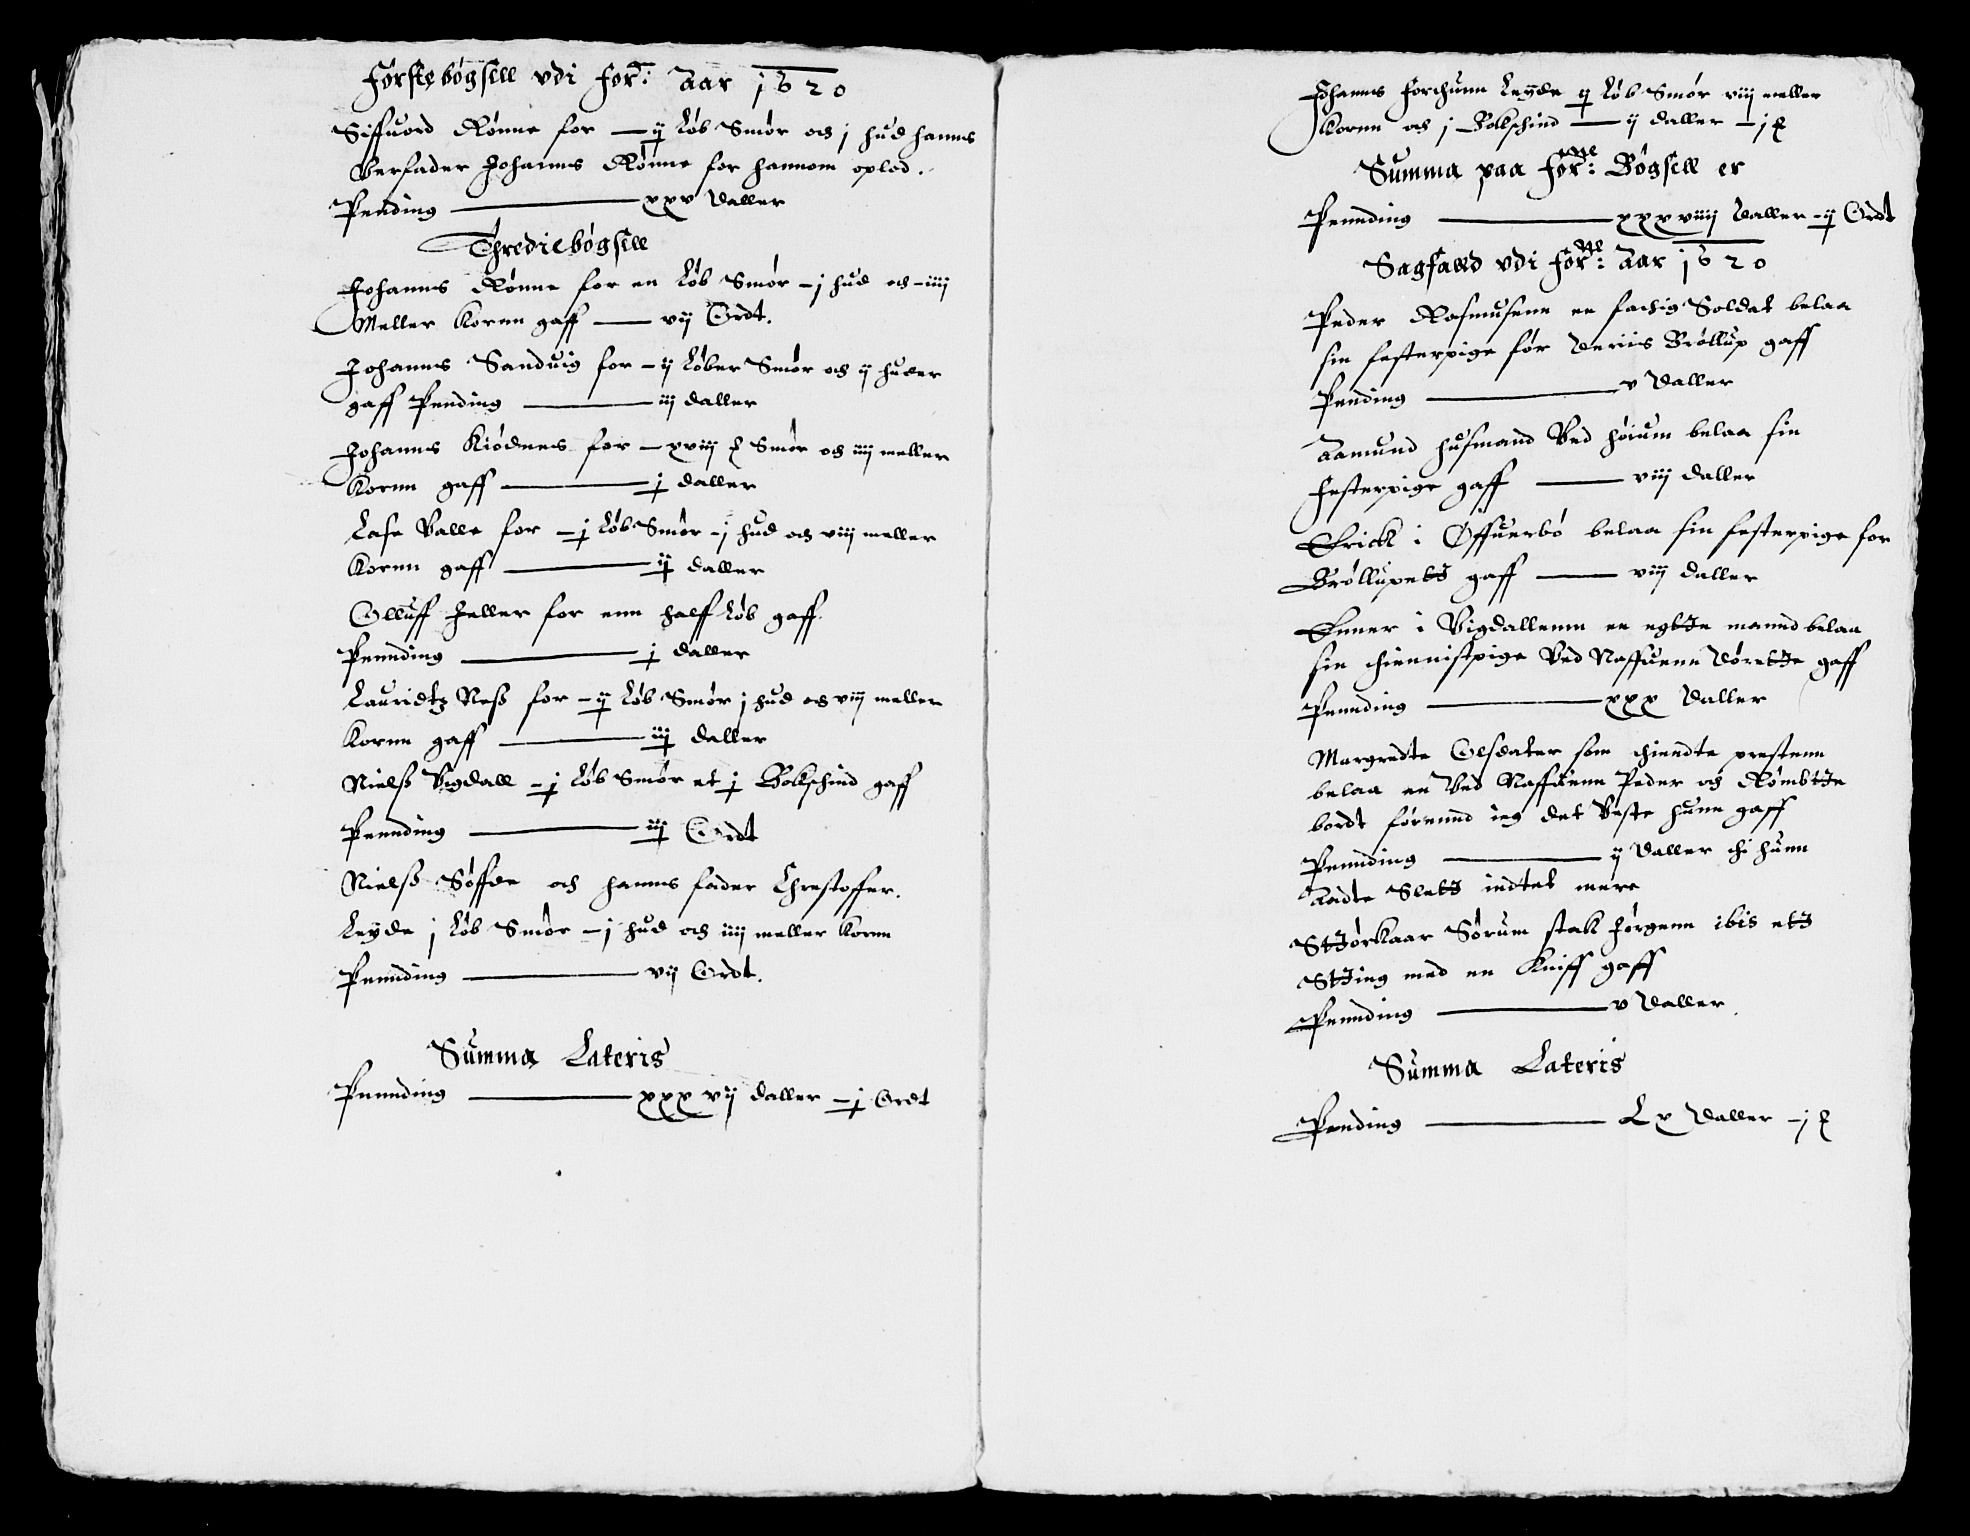 Førstebøgsell vdi for: Aar 1620
Siffuord Rønne for — ij Løb Smør och j hud hanns
Verfader Johanns Rønne for hannom oplod.
Pending — xxv daller
Thrediebøgsell
Johanns Rønne for en Løb Smør – j hud och – iiij
Meller Kornn gaff — vij Ordt.
Johanns Sanduig for – ij Løber Smør och ij huder
gaff Pending — iij daller
Johanns Kiødnes for – xviij Smør och iiij meller
Kornn gaff — j daller
Lase Valle for – j Løb Smør – j hud och viij meller
Kornn gaff — ij daller
Olluff Heller for enn halff Løb gaff
Pennding — j daller
Lauridtz Neß for – ij Løb Smør j hud och viij meller
Kornn gaff — iij daller
Nielß Vigdall – j Løb Smør et j Bokschind gaff
Pennding — iij Ordt
Nielß Søffde och hanns fader Chrestoffer.
Leyde j Løb Smør – j hud och iiij meller Kornn
Pennding — vij Ordt.
Summa Lateris
Pennding — xxxvij daller – j Ordt
Johanns Forchunn Leyde ij Løb Smør viij meller
Kornn och j Bokschind — ij daller – j
Summa paa for:ne Bøgsell er
Pennding — xxxviiij daller – ij Ordt
Sagfald vdi for:ne Aar 1620
Peder Rasmusenn en Soldat belaa
sin festerpige før deriis Brøllup gaff
Pending — v daller
Aamund husmand Ved Høium belaa sin
Festerpige gaff — viij daller
Erick i Øffuerbø belaa sin festerpige for
Brøllupetz gaff — viij daller
Enner i Vigdallenn en egtte mannd belaa
sin thiennistpige Ved Naffuenn gaff
Pennding — xxx daller
Margredte Olsdater som thiendte prestenn
belaa en Ved Naffuenn Peder och
bordt førennd ieg det Viste hunn gaff
Pennding — ij daller thi hunn
Aadte Sletz indtet mere
Stzørkaar Sørum stak Jørgenn ibis etz
Stzing med en Kniff gaff
Pennding — v daller
Summa Lateris
Pending — Lv daller – j